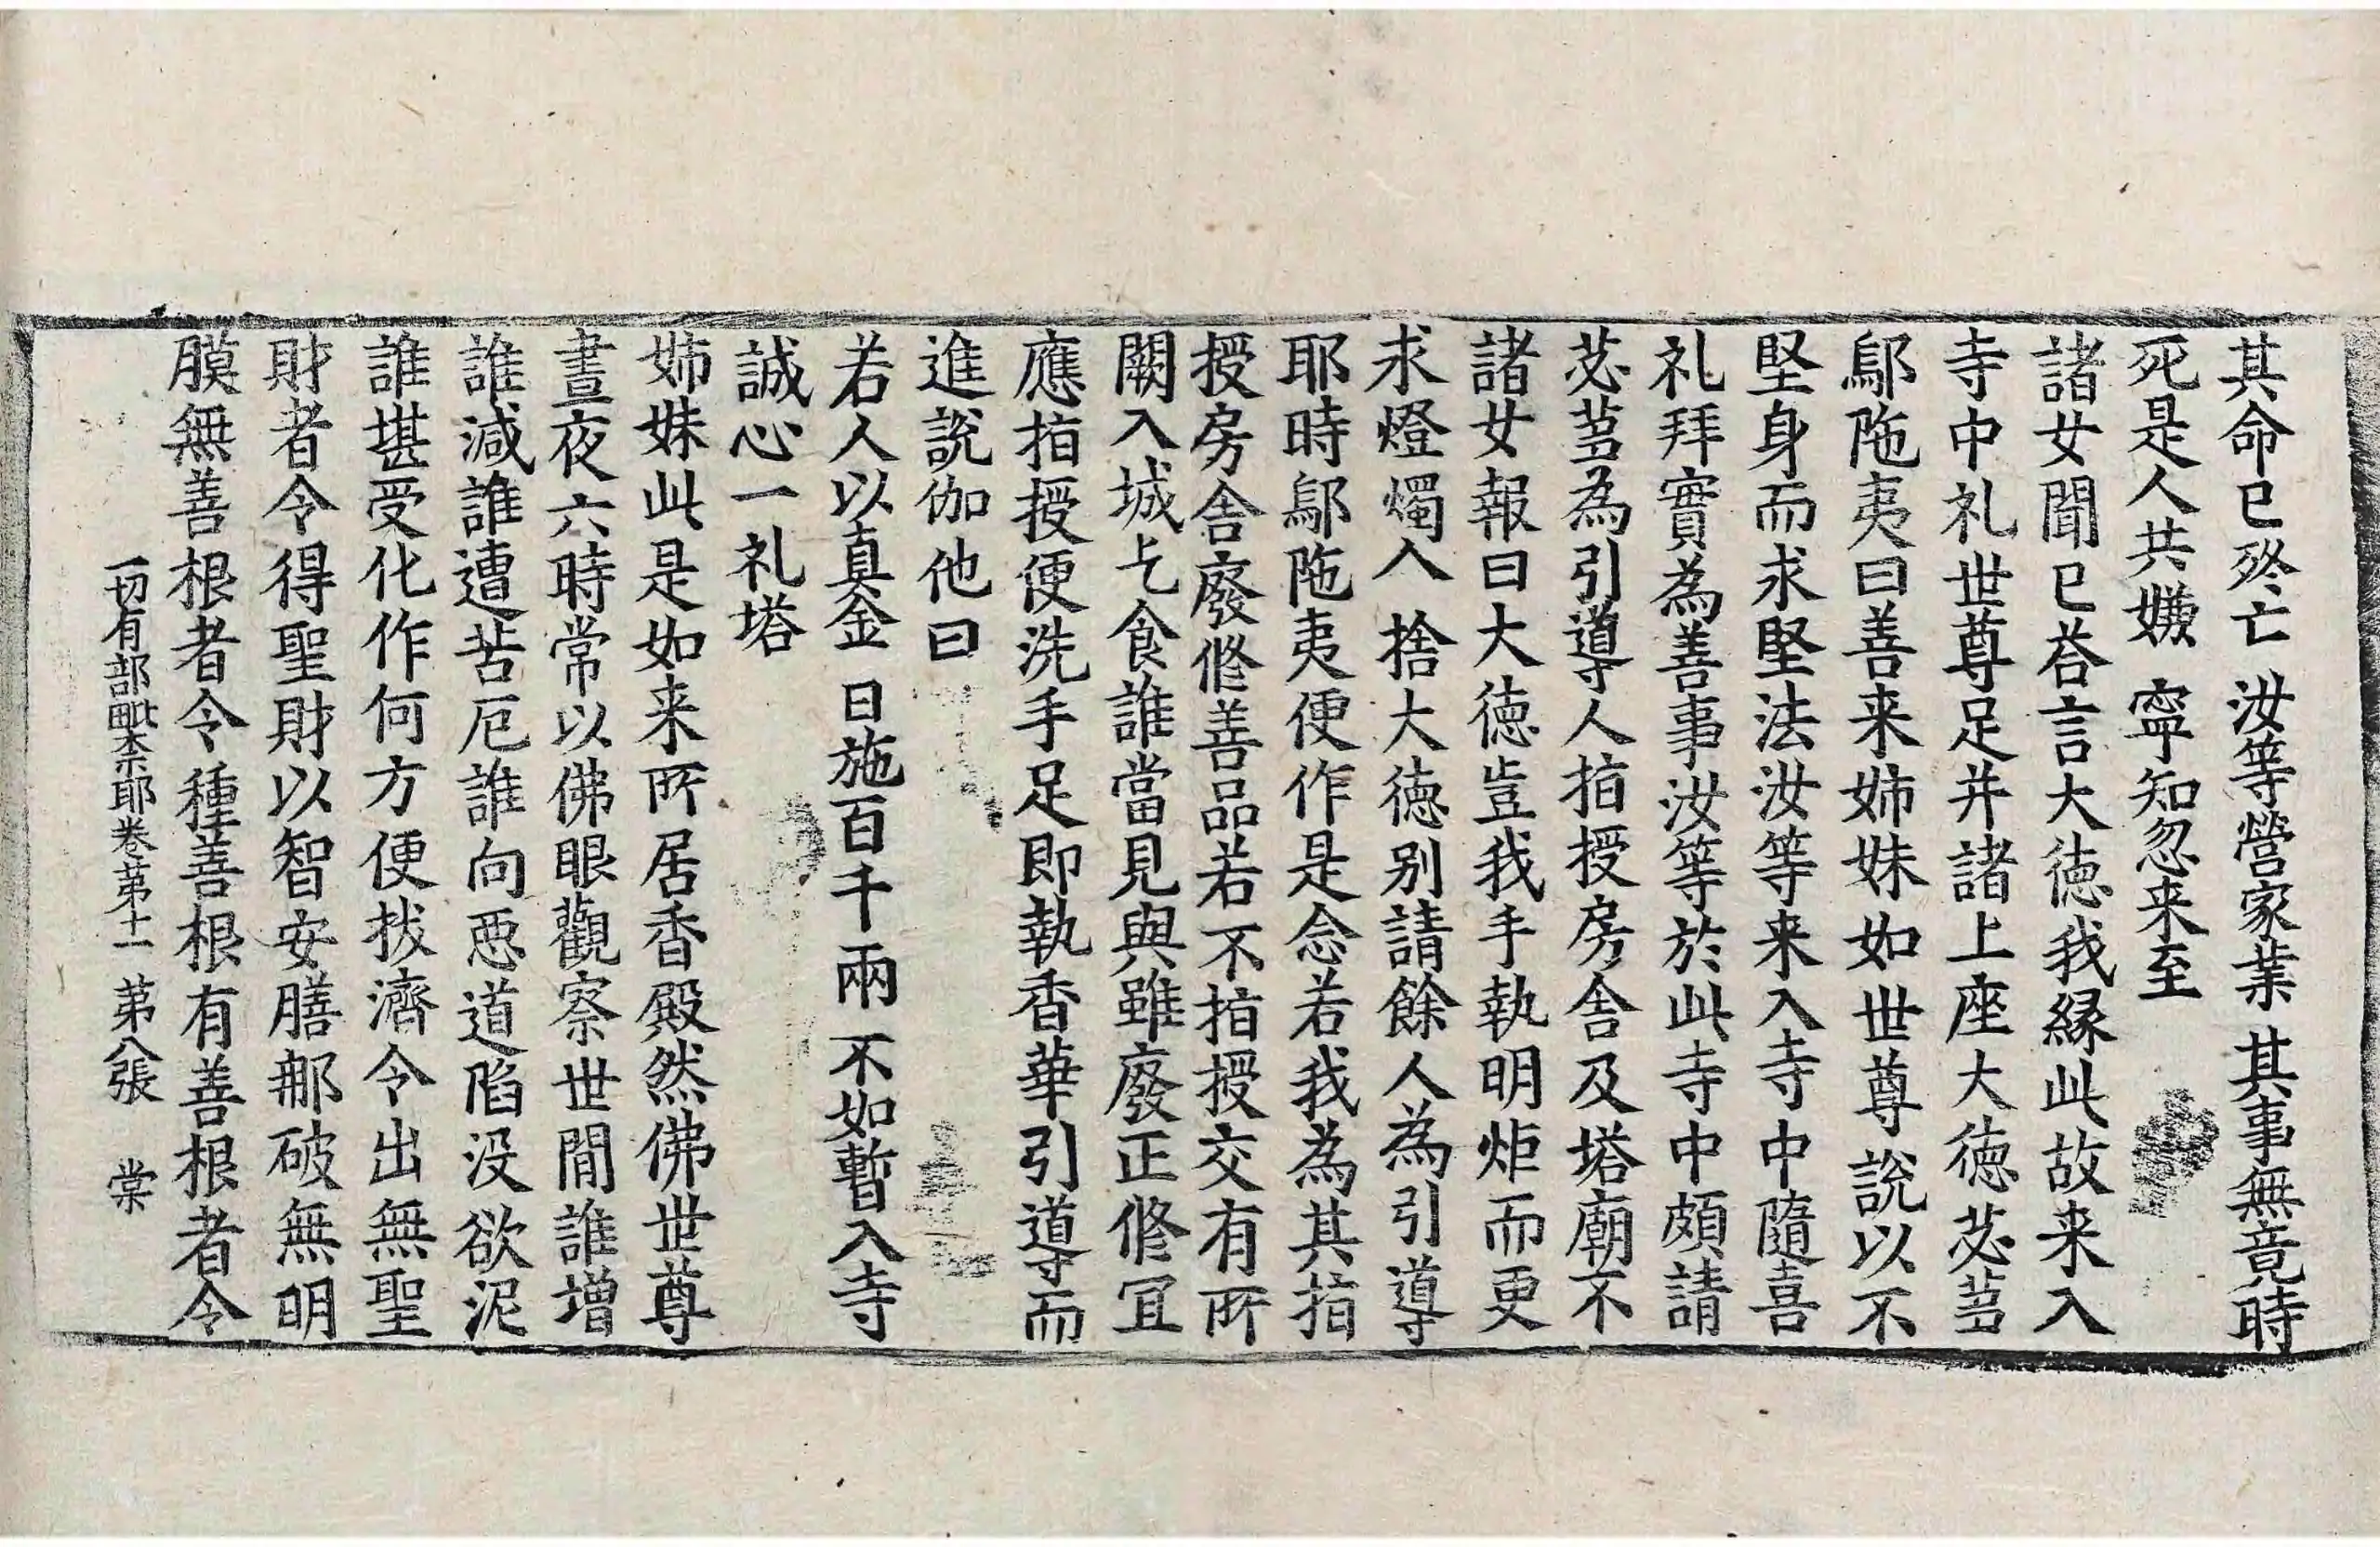 其命已終亡　汝等營家業　其事無竟時
死是人共嫌　寧知忽来至
諸女聞已荅言大徳我縁此故来入
寺中礼世尊足并諸上座大徳苾芻
鄔陁夷曰善来姉妹如世尊說以不
堅身而求堅法汝等来入寺中隨喜
礼拜實為善事汝等於此寺中頗請
苾芻為引導人指授房舍及塔廟不
諸女報曰大徳豈我手執明炬而更
求燈燭入　捨大徳別請餘人為引導
耶時鄔陁夷便作是念若我為其指
授房舍廢修善品若不指授交有所
闕入城乞食誰當見與雖廢正修冝
應指授便洗手足即執香華引導而
進說伽他曰
若人以真金　日施百千兩　不如暫入寺
誠心一礼塔
姉妹此是如来所居香殿然佛世尊
晝夜六時常以佛眼觀察世間誰增
誰減誰遭苦厄誰向惡道陷没欲泥
誰堪受化作何方便拔濟令出無聖
財者令得聖財以智安膳那破無明
膜無善根者令種善根有善根者令
一切有部毗柰耶卷第十一　第八張　棠